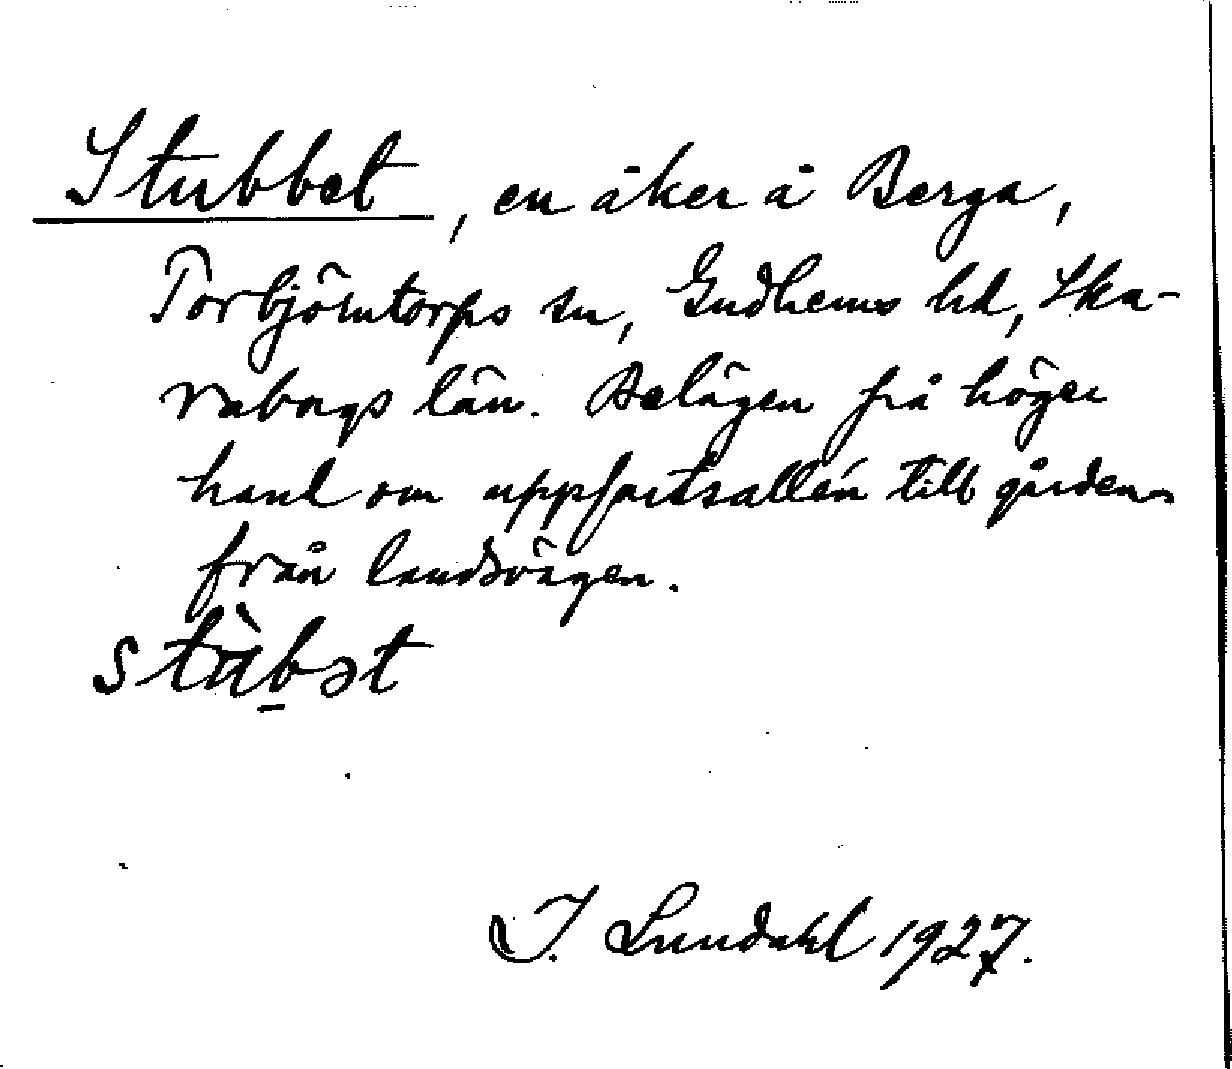 Stubbet, en åker å Berga,
Torbjörntorps sn, Gudhems hd, Ska-
raborgs län. Belägen på höger
hand om uppfartsallén till gården
från landsvägen.
stùbət
I. Lundahl 1927.